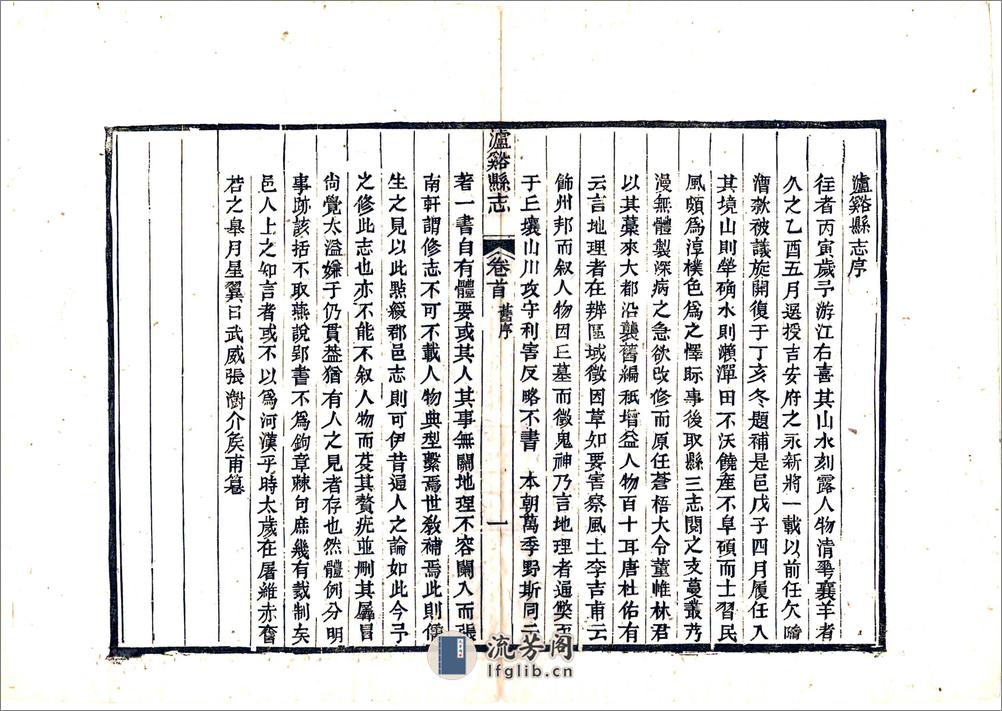 瀘谿縣志序
往者丙寅歲予游江右喜其山水刻露人物清華襄羊者
久之乙酉五月選授吉安府之永新將一載以前任欠
漕欵被議旋開復于丁亥冬題補是邑戊子四月履任入
其境山則犖确水則瀨渾田不沃饒產不阜碩而士習民
風頗爲淳樸色爲之懌眎事後取縣三志閱之支蔓叢芿
漫無體製深病之急欲改修而原任蒼梧大令董帷林君
以其藁來大都沿襲舊編秖增益人物百十耳唐杜佑有
云言地理者在辨區域徵因革如要害察風土李吉甫云
飾州邦而叙人物因丘墓而徵鬼神乃言地理者通獘至
于丘壤山川攻守利害反略不書 本朝萬季野斯同云
瀘谿縣志
卷首
舊序
一
著一書自有體要或其人其事無關地理不容闌入而張
南軒謂修志不可不載人物典型繫焉世敎補焉此則儒
生之見以此點綴郡邑志則可伊昔通人之論如此今予
之修此志也亦不能不叙人物而芟其贅疣並刪其羼冒
尚覺太溢嫌于仍貫葢猶有人之見者存也然體例分明
事跡該括不取燕說郢書不爲鉤章棘句庶幾有裁制矣
邑人上之知言者或不以爲河漢乎時太歲在屠維赤奮
若之皋月星翼日武威張澍介矦甫纂
流芳阁
lfglib.cn